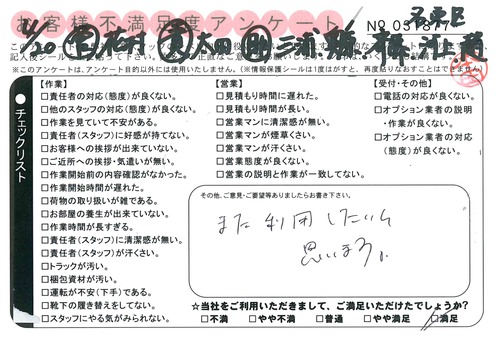 お客様不満足度アンケート
№ 031877
記入後シールを
※このアンケートは、アンケート目的以外には使用いたしません。(※情報保護シールは1度はがすと、再度貼りなおすことはできません)
チェックリスト
【作業】
□責任者の対応(態度)が良くない。
□他のスタッフの対応(態度)が良くない。
□作業を見ていて不安がある。
□責任者(スタッフ)に好感が持てない。
□お客様への挨拶が出来ていない。
□ご近所への挨拶・気遣いが無い。
□作業開始前の内容確認がなかった。
□作業開始時間が遅れた。
□荷物の取り扱いが雑である。
□お部屋の養生が出来ていない。
□作業時間が長すぎる。
□責任者(スタッフ)に清潔感が無い。
□責任者(スタッフ)が汗くさい。
□トラックが汚い。
□梱包資材が汚い。
□運転が不安(下手)である。
□靴下の履き替えをしてない。
□スタッフにやる気がみられない。
【営業】
□見積もり時間に遅れた。
□見積もり時間が長い。
□営業マンに清潔感が無い。
□営業マンが煙草くさい。
□営業マンが汗くさい。
□営業態度が良くない。
□営業の説明と作業が一致してない。
【受付・その他】
□電話の対応が良くない。
□オプション業者の説明
・作業が良くない。
□オプション業者の対応
(態度)が良くない。
その他、ご意見・ご要望等ありましたらお書き下さい。
また利用したいと
思います。
☆当社をご利用いただきまして、ご満足いただけたでしょうか?
□不満 □やや不満 □普通 □やや満足 □満足